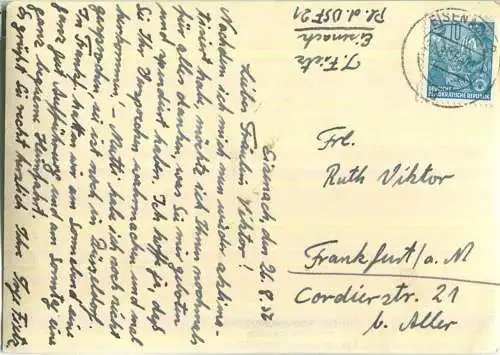 Eisenach, den 26.8.57
Liebes Fräulein Viktor!
Nachdem ich mich nun wieder aklima-
tisiert habe, möchte ich Ihnen nochmals
für alles danken, was Sie mir geboten
und spendiert haben. Ich hoffe ja, daß
Sie Ihr Versprechen wahrmachen und mal
herkommen, - Mutti habe ich noch nicht
gesprochen, sie ist noch in Düsseldorf.
In Frankf. hatten wir am Sonnabend eine
ganz gute Aufführung und am Sonntag eine
ganz bequeme Heimfahrt.
Es grüßt Sie recht herzlich Ihr
J. Fietz
Eisenach
Pl. d. DSF 21
EISEN
10
DEUTSCHE
DEMOKRATISCHE REPUBLIK
Frl.
Ruth Viktor
Frankfurt/a. M
Cordierstr. 21
b. Aller